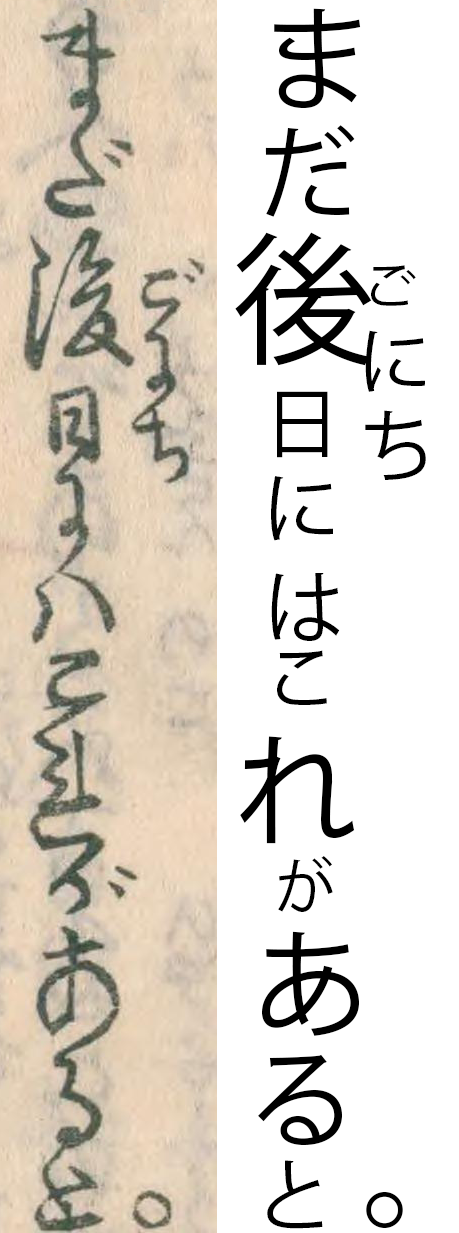 まだ後日にはこれがあると。
ごにち
まだ後日にはこれがあると。
ごにち